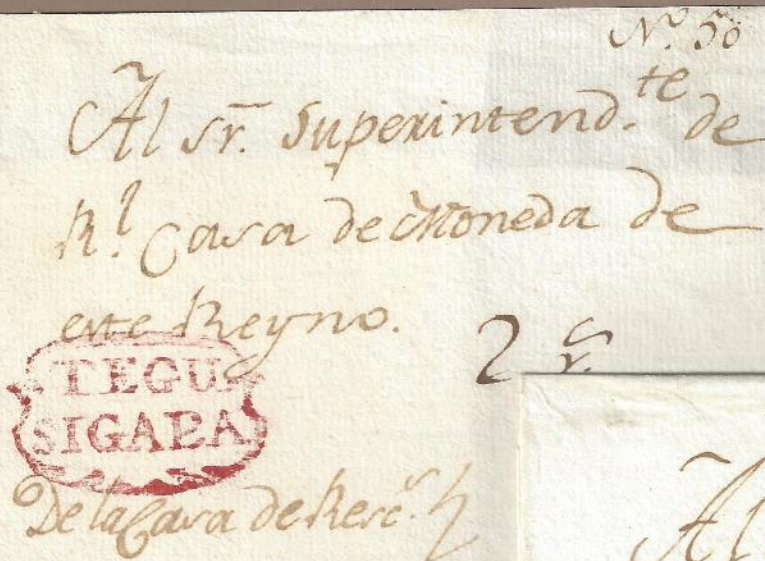 N.º 50
Al sr. Superintend.te de
R.l Casa de Moneda de
este Reyno.
2 r.s
TEGU
SIGALPA
De la Casa de Resc.s
Al